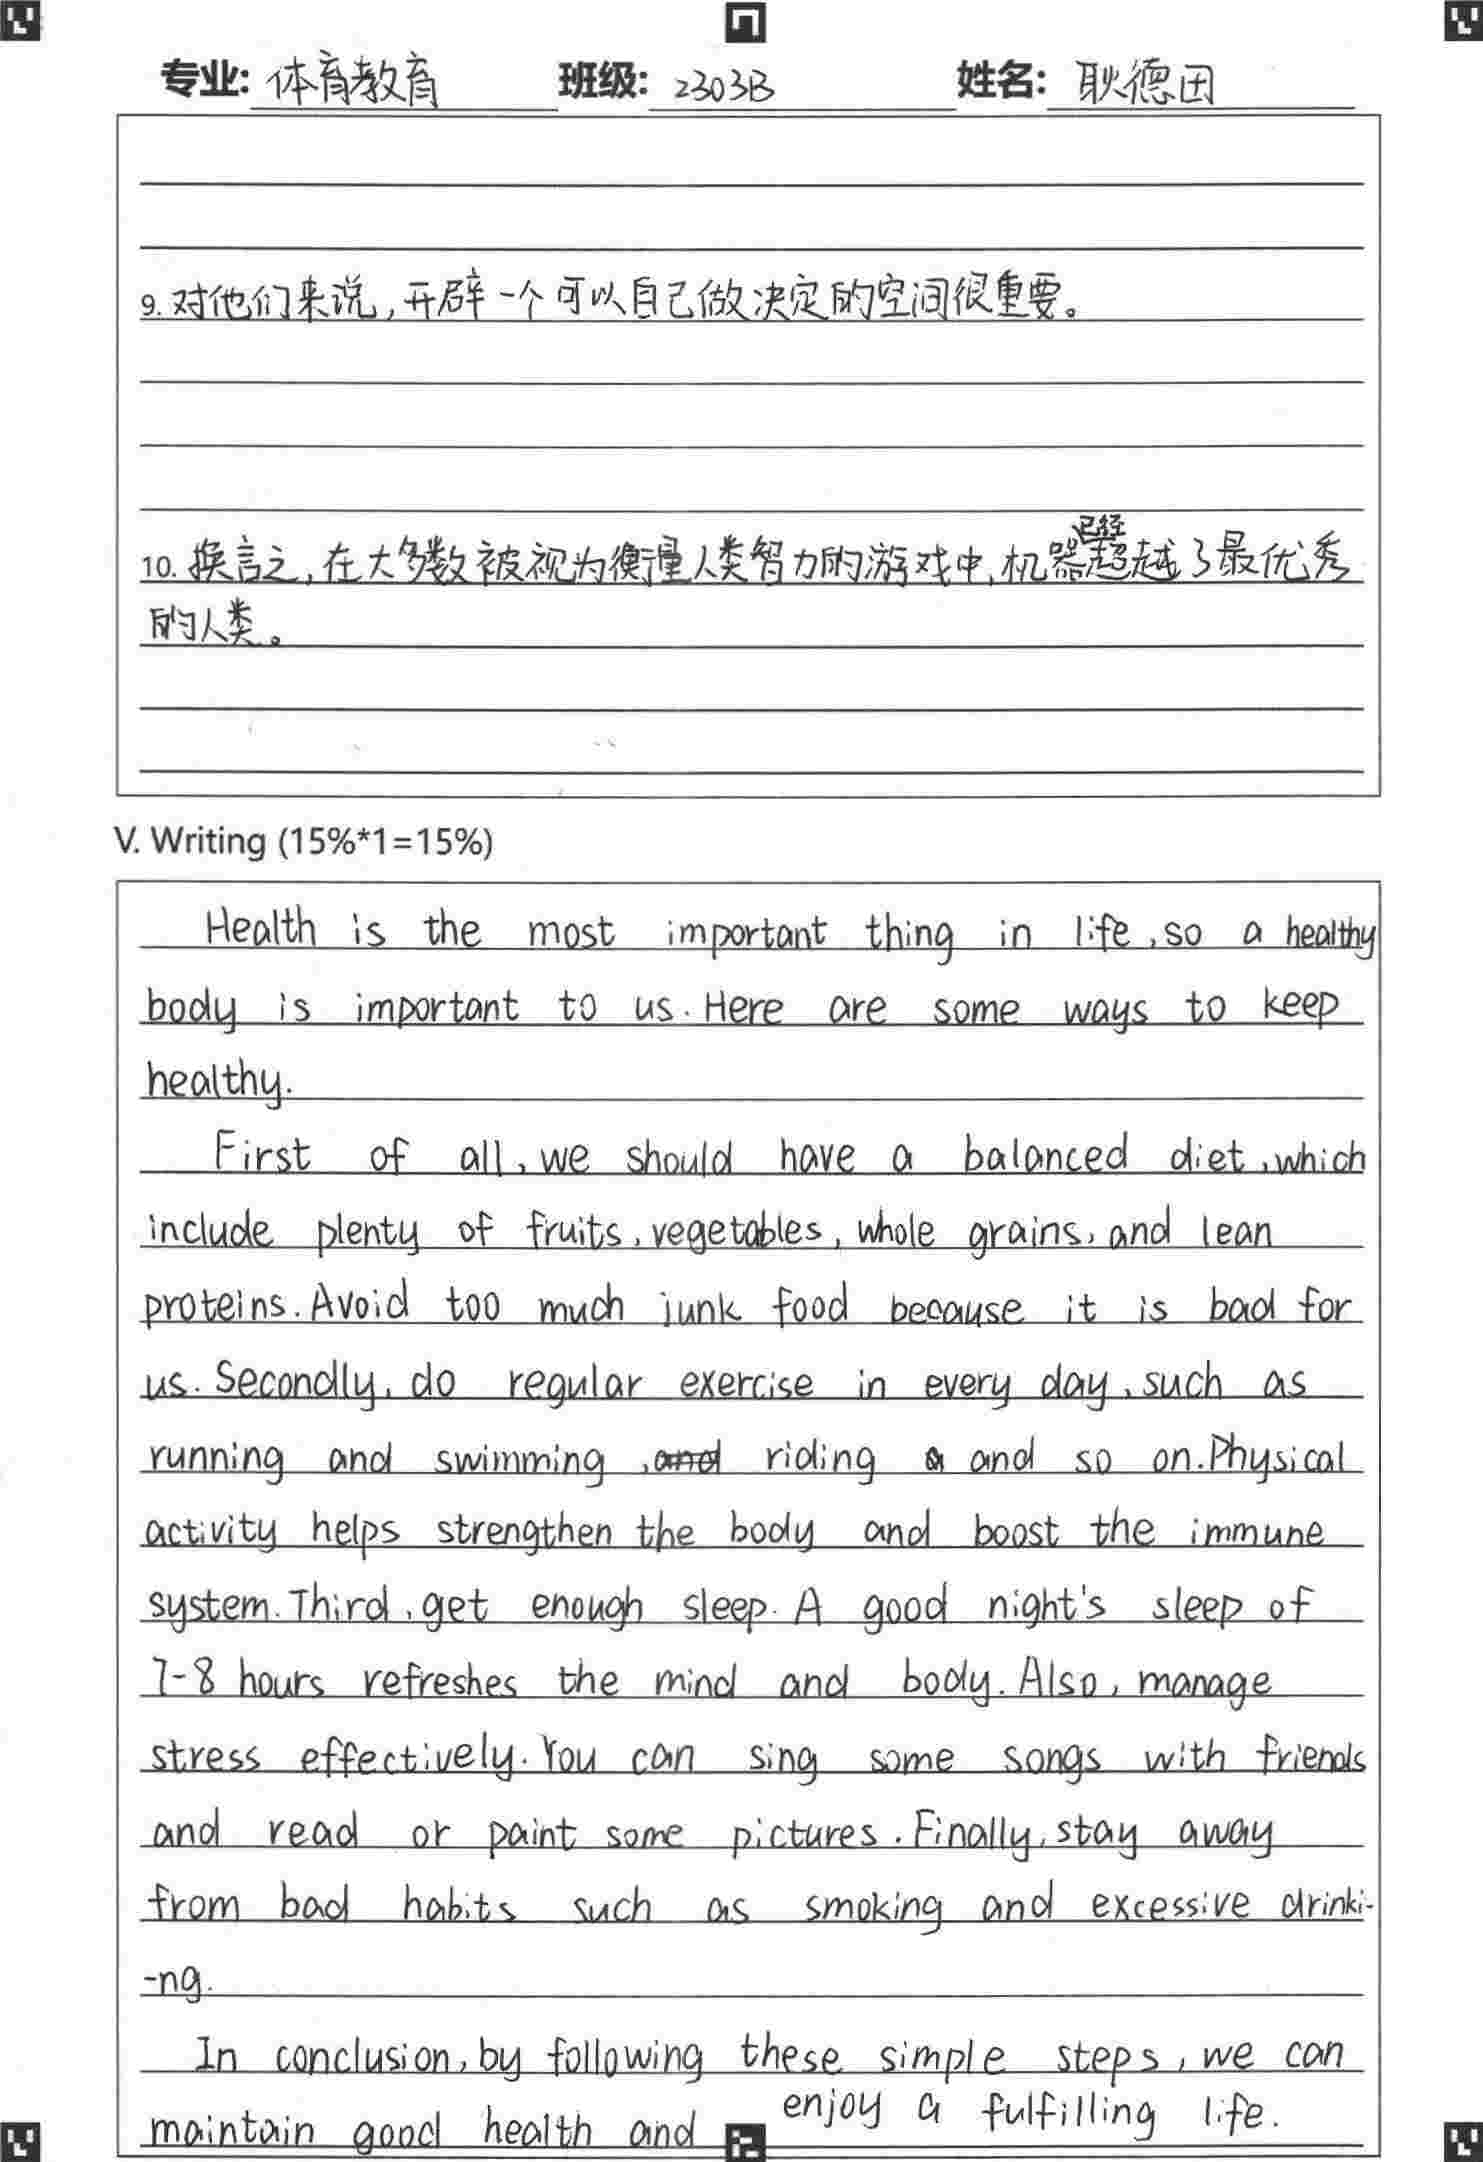 专业: 体育教育 班级: 2303B 姓名: 耿德田
9. 对他们来说,开辟一个可以自己做决定的空间很重要。
10. 换言之,在大多数被视为衡量人类智力的游戏中,机器已经超越了最优秀
的人类。
V. Writing (15%*1=15%)
Health is the most important thing in life, so a healthy
body is important to us. Here are some ways to keep
healthy.
First of all, we should have a balanced diet, which
include plenty of fruits, vegetables, whole grains, and lean
proteins. Avoid too much junk food because it is bad for
us. Secondly, do regular exercise in every day, such as
running and swimming, riding and so on. Physical
activity helps strengthen the body and boost the immune
system. Third, get enough sleep. A good night's sleep of
7-8 hours refreshes the mind and body. Also, manage
stress effectively. You can sing some songs with friends
and read or paint some pictures. Finally, stay away
from bad habits such as smoking and excessive drinki-
-ng.
In conclusion, by following these simple steps, we can
maintain good health and enjoy a fulfilling life.